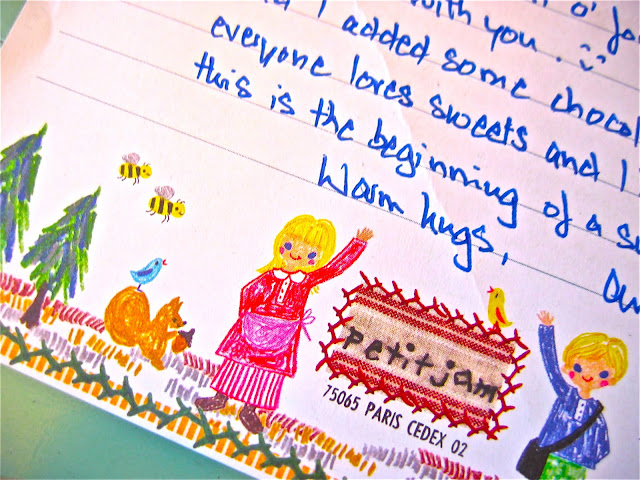 with you.
I added some
everyone loves sweets and
this is the beginning of a
Warm hugs,
petitjam
75065 PARIS CEDEX 02